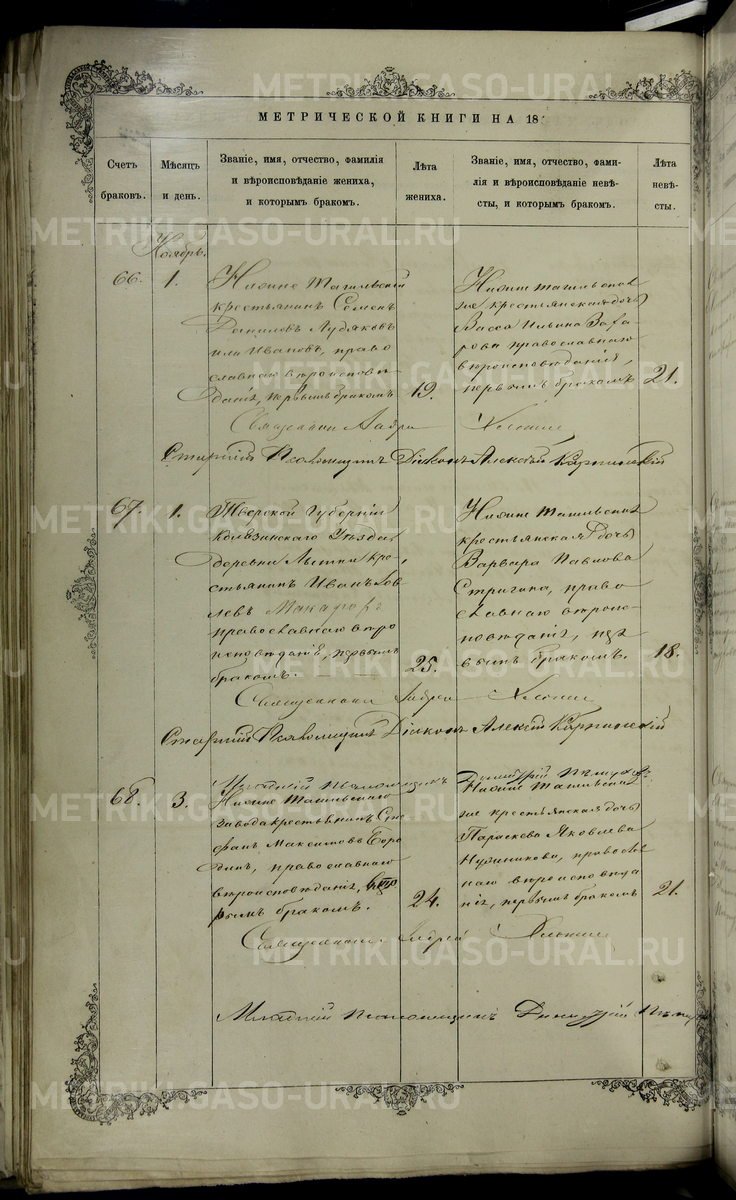 МЕТРИЧЕСКОЙ КНИГИ НА 18
Счетъ браковъ.
Мѣсяцъ и день.
Званіе, имя, отчество, фамилія
и вѣроисповѣданіе жениха,
и которымъ бракомъ.
Лѣта жениха.
Званіе, имя, отчество, фами-
лія и вѣроисповѣданіе невѣ-
сты, и которымъ бракомъ.
Лѣта невѣ-
сты.
Ноябрь.
66.
1.
Нижне Тагильскій
крестьянинъ Семенъ
Даниловъ
или Ивановъ, право
славнаго вѣроисповѣ
данія, первымъ бракомъ
19.
Нижнетагильска
же крестьянская дочь
Васса Ильина Заха
рова православнаго
вѣроисповѣданія,
первымъ бракомъ
21.
Священникъ Андрей
Старшій Псаломщикъ Діаконъ Алексѣй Карпинскій
67.
1.
Тверской Губерніи
Колязинскаго Уѣзда
деревни кре-
стьянинъ Иванъ Яков
левъ Макаровъ
православнаго вѣро
исповѣданія, первымъ
бракомъ.
25.
Нижне Тагильская
крестьянская дочь
Варвара Павлова
Стригина, право
славнаго вѣроис-
повѣданія, пер
вымъ бракомъ.
18.
Священникъ Андрей
Старшій Псаломщикъ Діаконъ Алексѣй Карпинскій
Младшій Псаломщикъ Димитрій
68.
3.
Нижне Тагильскаго
завода крестьянинъ Сте
фанъ Максимовъ Боро
динъ, православнаго
вѣроисповѣданія, вто
рымъ бракомъ.
24.
Нижне Тагильская
же крестьянская дочь
Параскева Яковлева
православ
наго вѣроисповѣда
нія, первымъ бракомъ
21.
Священникъ Андрей
Младшій Псаломщикъ Димитрій
METRIKI.GASO-URAL.RU